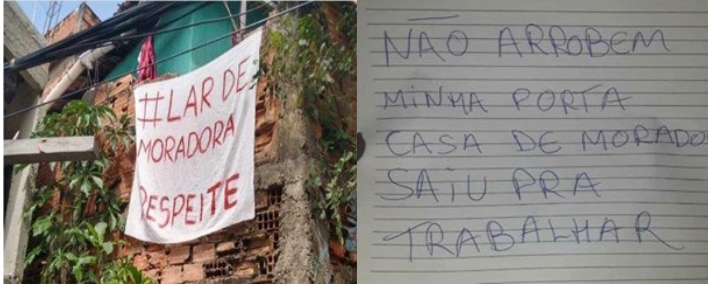 #LAR DE
MORADORA
RESPEITE
NÃO ARROBEM
MINHA PORTA
CASA DE MORADO
SAIU PRA
TRABALHAR